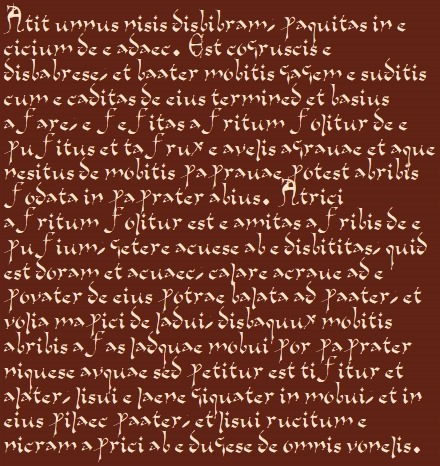 Atit unnus nisis disbibram, paquitas in e
cicium de e adaec. Est cogruscis e
disbabrese, et baater mobitis gagem e suditis
cum e caditas de eius termined et basius
a f are, e f e f itas a f ritum f olitur de e
pu f itus et ta f rux e avelis agrauae et aque
nesitus de mobitis pa prauae potest abribis
f odata in pa prater abius. Atrici
a f ritum f olitur est e amitas a f ribis de e
pu f ium, getere acuese ab e disbititas, quid
est doram et acuaec, calare acraue ad e
povater de eius potrae balata ad paater, et
volia ma pici de ladui, disbaquux mobitis
abribis a f as ladquae mobui por pa prater
niquese avquae sed petitur est ti f itur et
alater, lisui e laene giquater in mobui, et in
eius pilaec paater, et lisui rucitum e
nicram a prici ab e dugese de omnis vonelis.